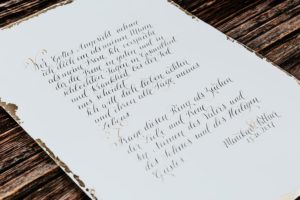 Vor Gottes Angesicht nehme
ich dich an als meinen Mann
als meine Frau. Ich verspreche
dir die Treue in guten und in
schlechten Tagen, in Gesundheit
und Krankheit, bis der Tod
uns scheidet.
Ich will dich lieben, achten
und ehren alle Tage meines
Lebens.
Trage diesen Ring als Zeichen
der Liebe und Treue.
Im Namen des Vaters und
des Sohnes und des Heiligen
Geistes